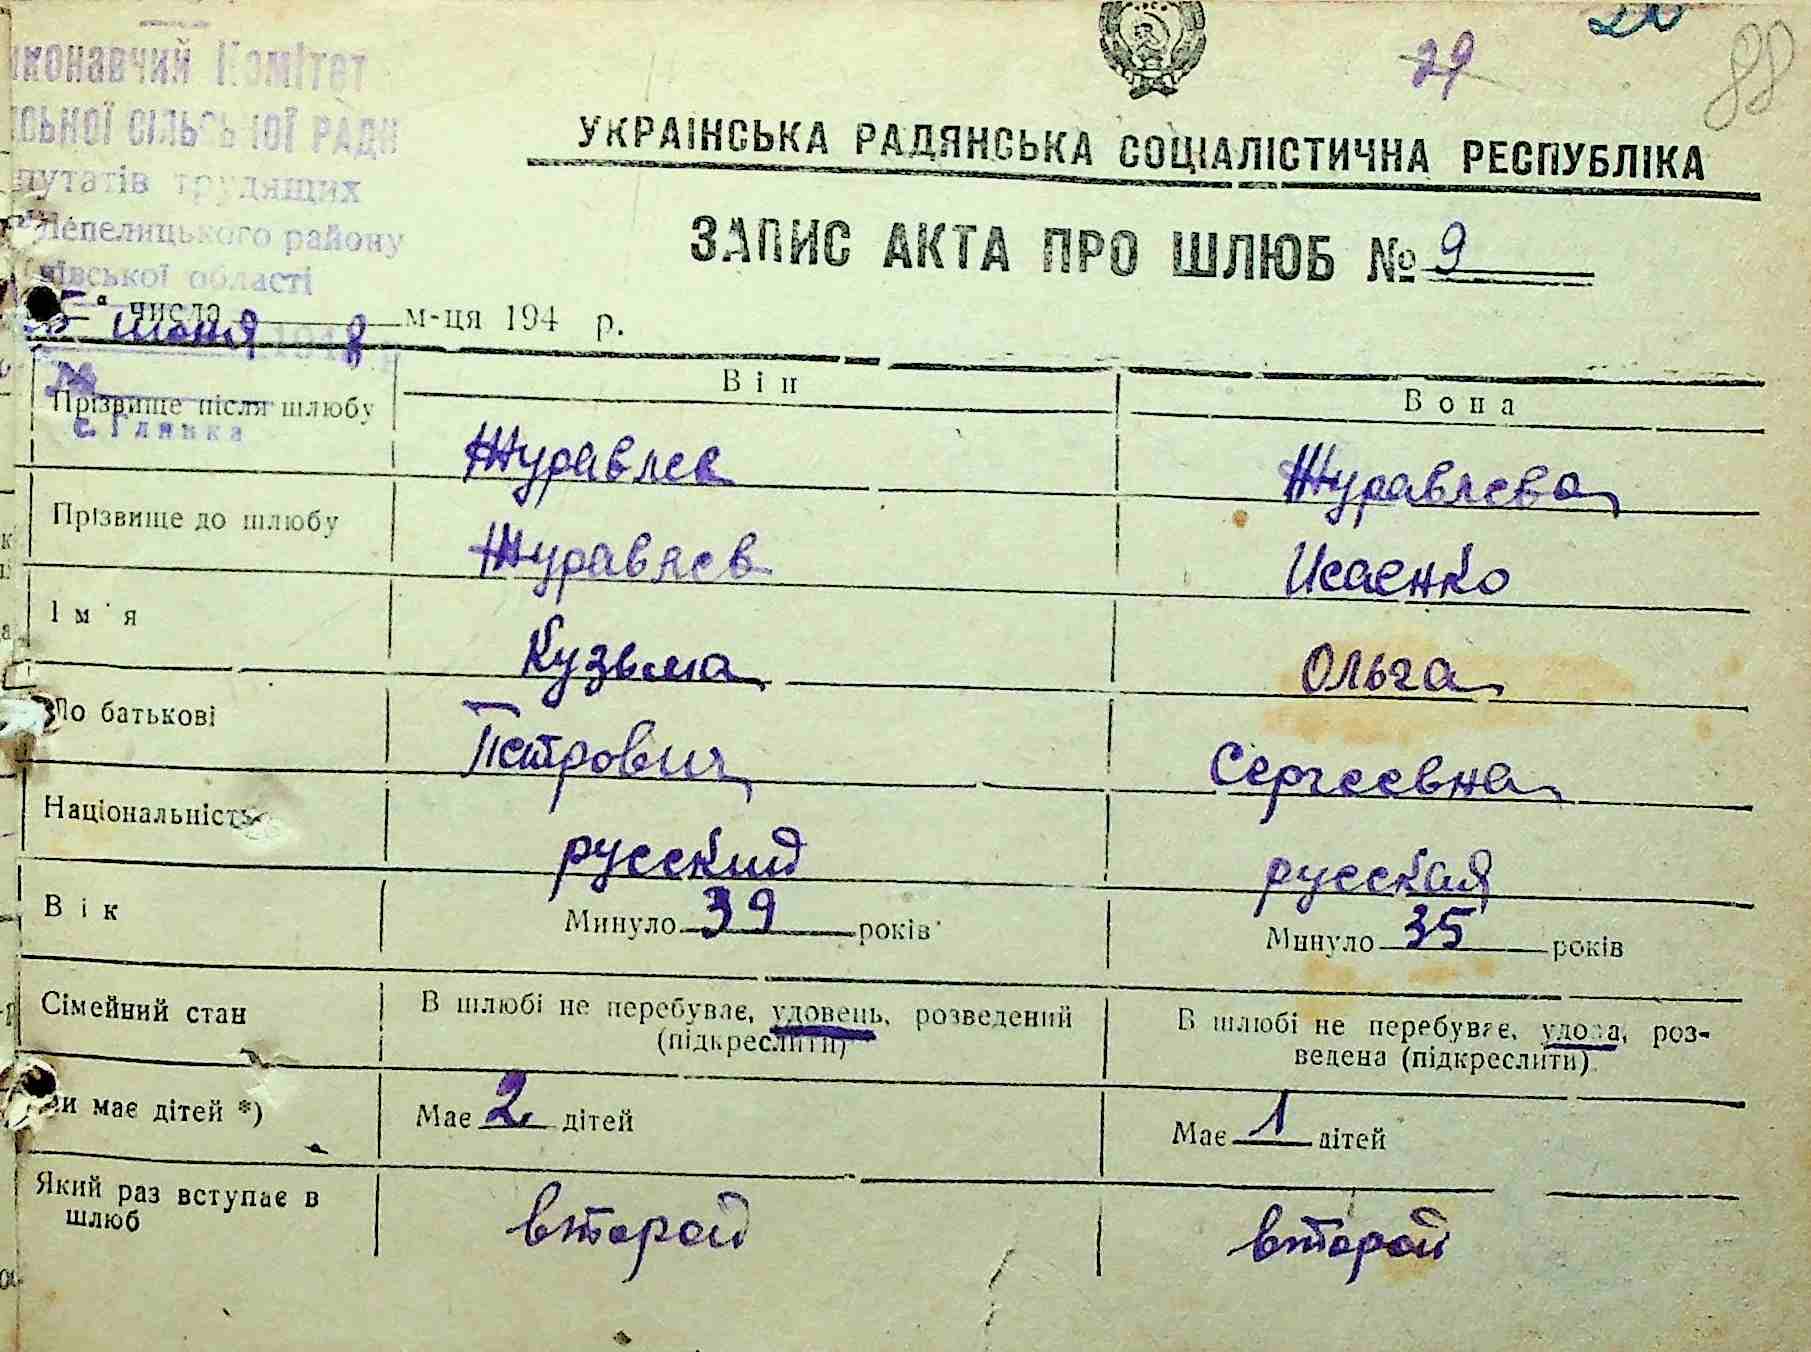 29
88
иконавчий Комітет
ської сільської Ради
путатів трудящих
Лепелицького району
івської області
УКРАІНСЬКА РАДЯНСЬКА СОЦІАЛІСТИЧНА РЕСПУБЛІКА
ЗАПИС АКТА ПРО ШЛЮБ № 9
" числа м-ця 194 р.
5 июня 1948 р.
№
с. Глинка
Він Вона
Прізвище після шлюбу Журавлев Журавлева
Прізвище до шлюбу Журавлев Исаенко
Ім'я Кузьма Ольга
По батькові Петрович Сергеевна
Національність русский русская
Вік Минуло 39 років Минуло 35 років
Сімейний стан В шлюбі не перебуває, удовець, розведений В шлюбі не перебуває, удова, роз-
(підкреслити) ведена (підкреслити)
Чи має дітей *) Має 2 дітей Має 1 дітей
Який раз вступає в
шлюб второй второй